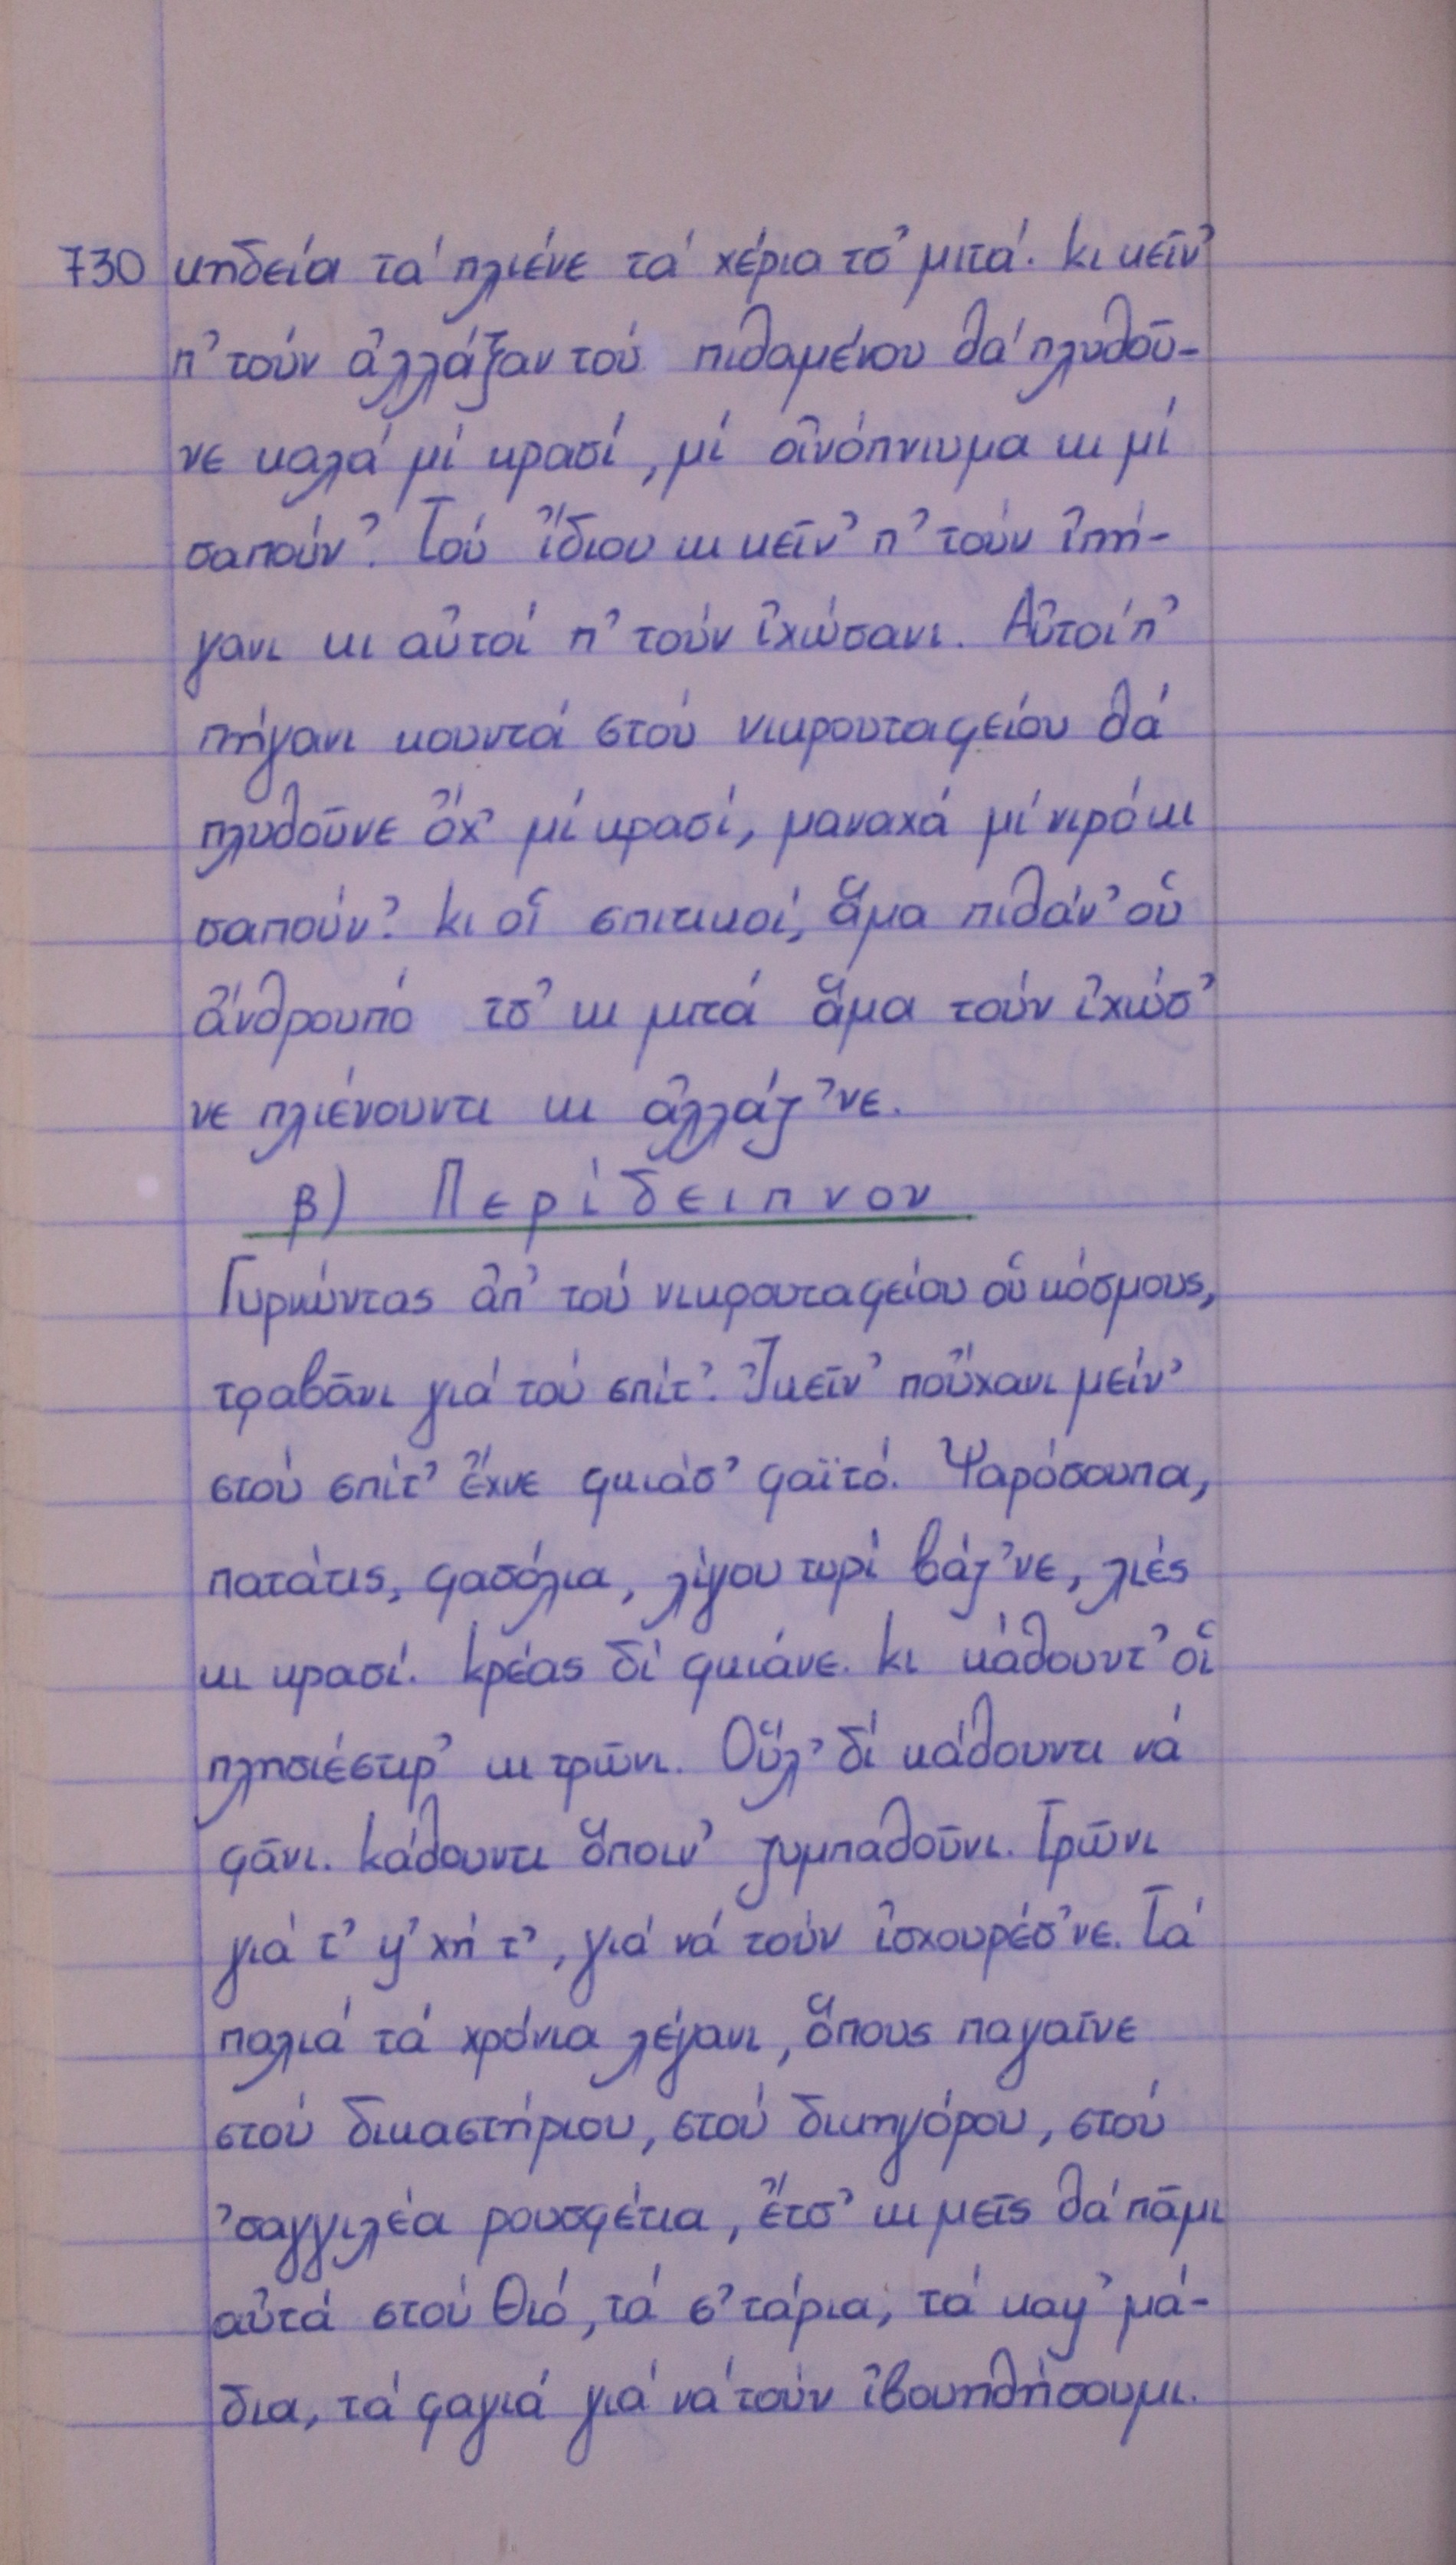 730 κηδεία τά πλιένε τά χέρια τσ' μιτά. Κι κεῖν'
π' τούν ἀλλάξαν τού πιθαμένου θά πλυθοῦ-
νε καλά μί κρασί, μί οἰνόπνιυμα κι μί
σαπούν'. Τού ἴδιου κι κεῖν' π' τούν ἰπή-
γανι κι αὐτοί π' τούν ἰχώσανι. Αὐτοί π'
πήγανι κουντά στού νικρουταφείου θά
πλυθοῦνε ὄχ' μί κρασί, μαναχά μί νιρό κι
σαπούν'. Κι οἱ σπιτικοί, ἅμα πιθάν' οὑ
ἄνθρουπό τσ' κι μιτά ἅμα τούν ἰχώσ'
νε πλιένουντι κι ἀλλάζ'νε.
β) Περίδειπνον
Γυρνώντας ἀπ' τού νικρουταφείου οὑ κόσμους,
τραβᾶνι γιά τού σπίτ'. Ἰκεῖν' ποὔχανι μείν'
στού σπίτ' ἔχνε φκιάσ' φαϊτό. Ψαρόσουπα,
πατάτις, φασόλια, λίγου τυρί βάζ'νε, λιές
κι κρασί. Κρέας δί φκιάνε. Κι κάθουντ' οἱ
πλησιέστιρ' κι τρῶνι. Οὕλ' δί κάθουντι νά
φᾶνι. Κάθουντι ὅποιν' ζυμπαθοῦνι. Τρῶνι
γιά τ' ψ'χή τ', γιά νά τούν ἰσχουρέσ'νε. Τά
παλιά τά χρόνια λέγανι, ὅπους παγαῖνε
στού δικαστήριου, στού δικηγόρου, στού
'σαγγιλέα ρουσφέτια, ἔτσ' κι μεῖς θά πᾶμι
αὐτά στού Θιό, τά σ'τάρια, τά καψ'μά-
δια, τά φαγιά γιά νά τούν ἰβουηθήσουμι.